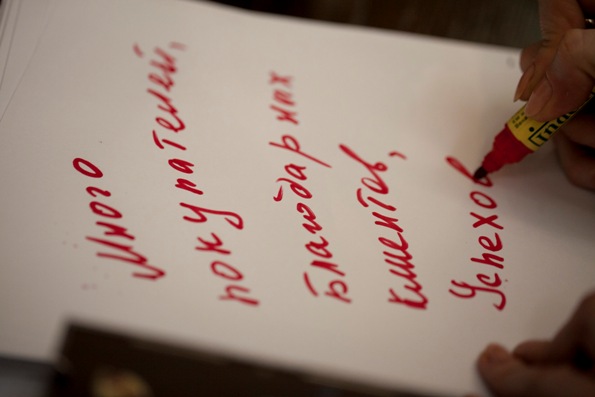 Много
покупателей,
Благодарных
клиентов,
Успехов